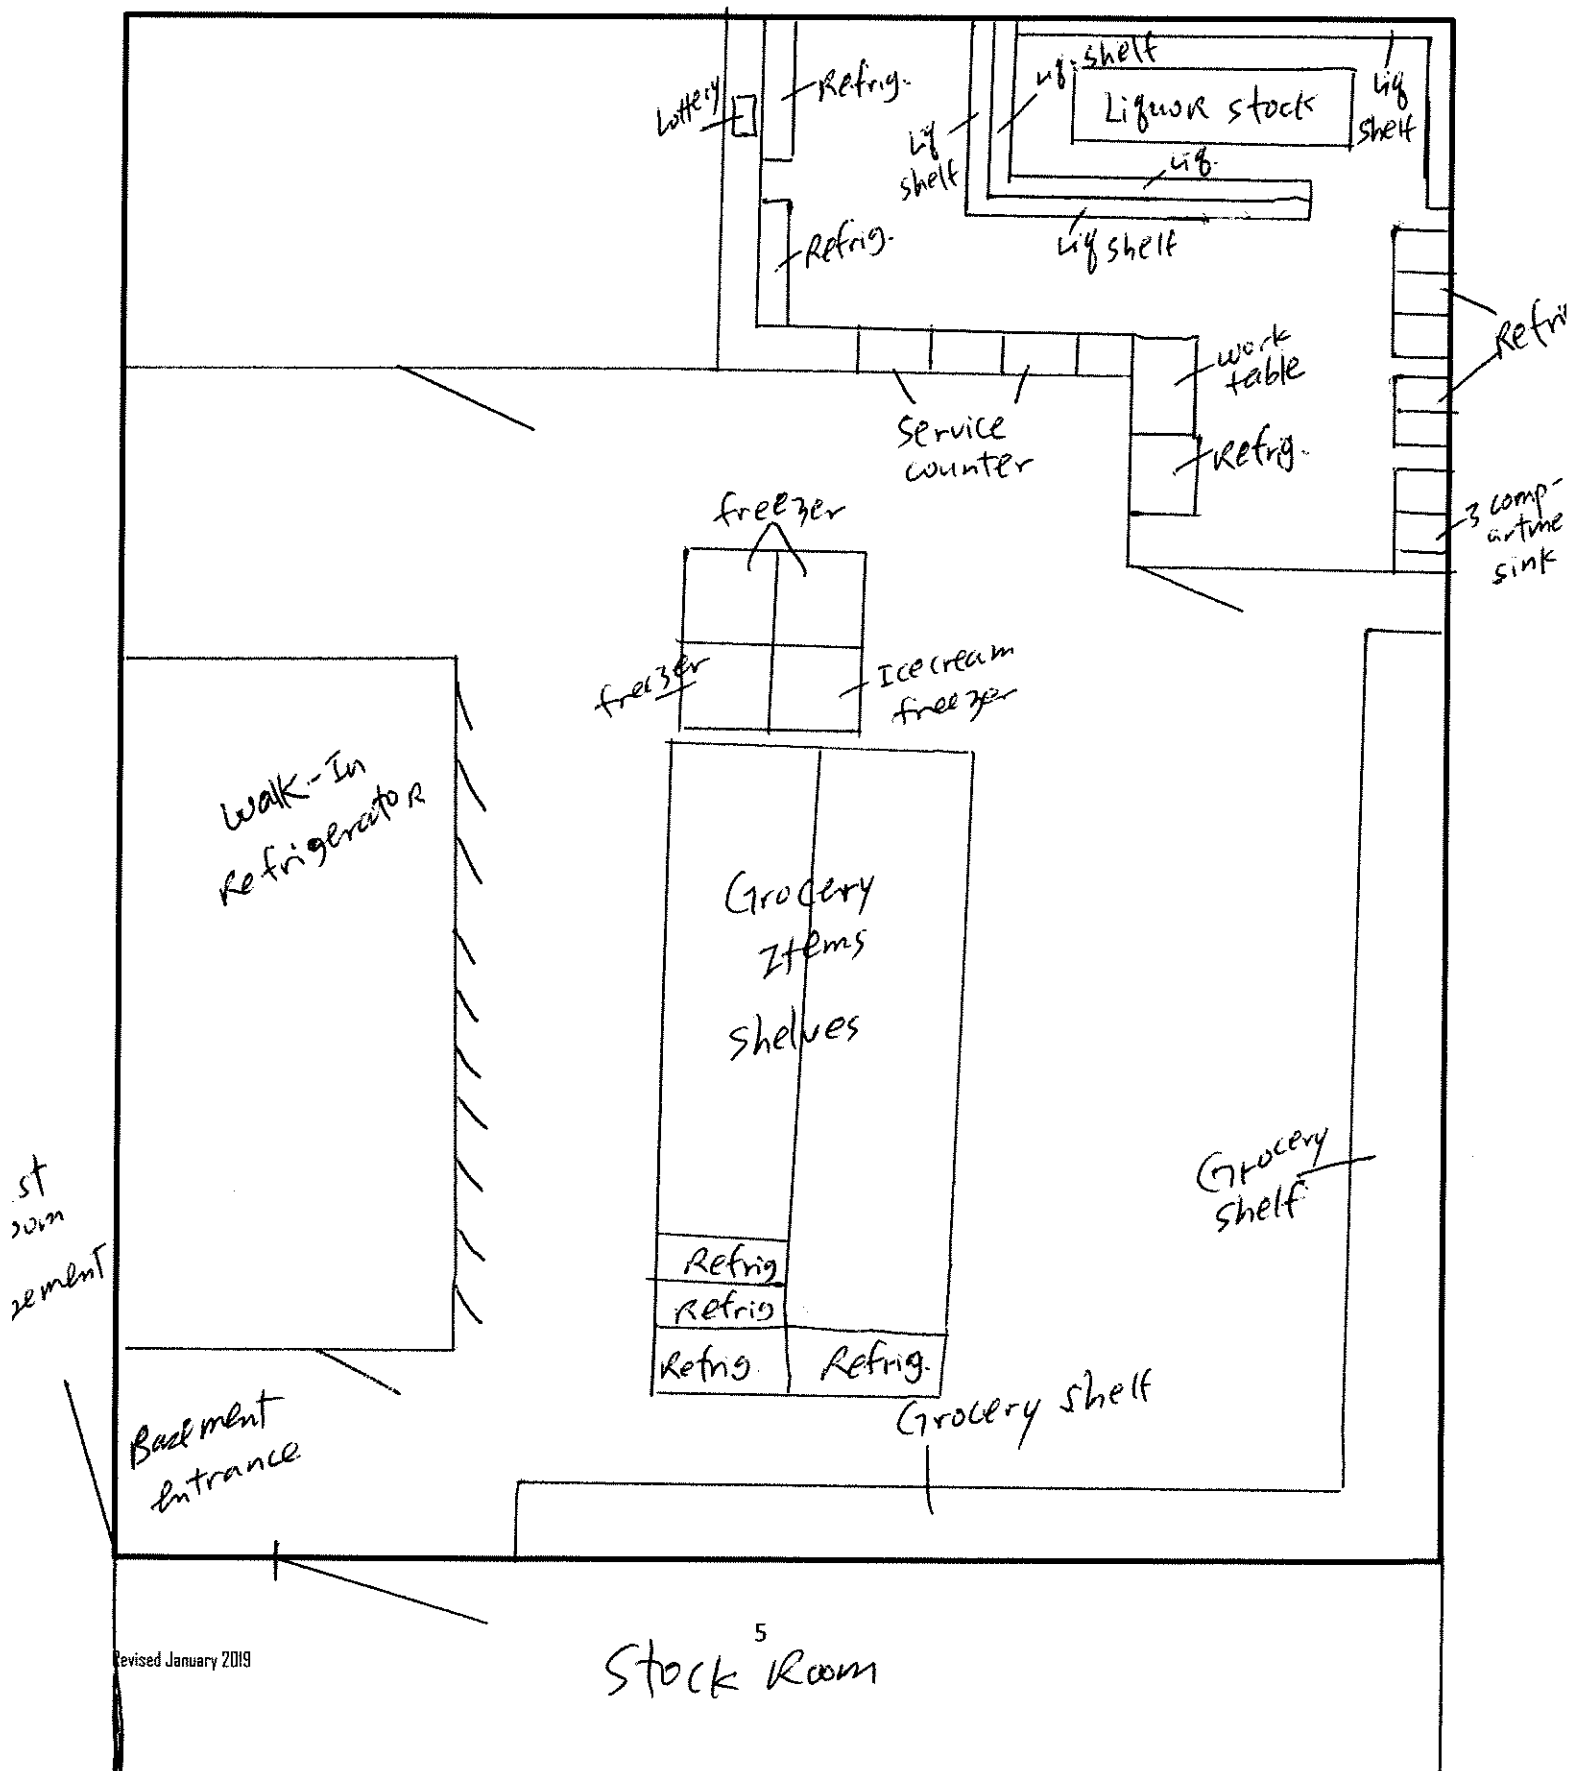 Lottery
Refrig.
Liq. shelf
Liquor stock
Liq
shelf
Liq
shelf
Liq.
Liq shelf
Refrig.
Refri
work
table
Service
counter
Refrig.
3 comp-
artme
sink
freezer
freezer
Icecream
freezer
Walk-In
Refrigerator
Grocery
Items
shelves
Grocery
shelf
st
oom
sement
Refrig
Refrig
Refrig.
Refrig.
Grocery shelf
Basement
entrance
5
Revised January 2019
Stock Room